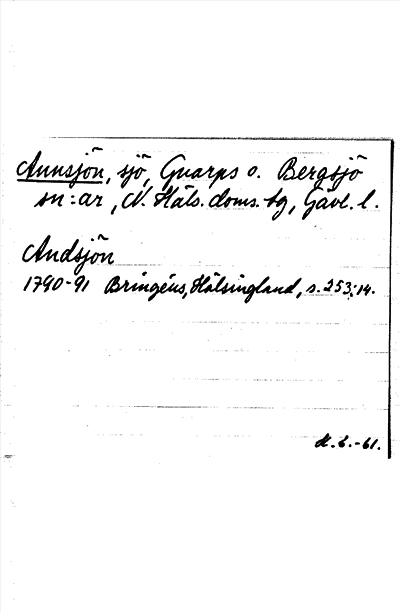 Annsjön, sjö, Gnarps o. Bergsjö
sn:ar, N. Häls. doms.-bg, Gävl. l.
Andsjön
1790-91 Bringéus, Hälsingland, s. 253:14.
-61.